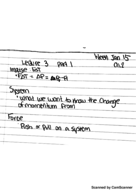 Week Jan 15
Lecture 3 Part 1 Ch.2
Impulse
System
· What we want to know the change
of momentum from
Force
Push or pull on a system
Scanned by CamScanner